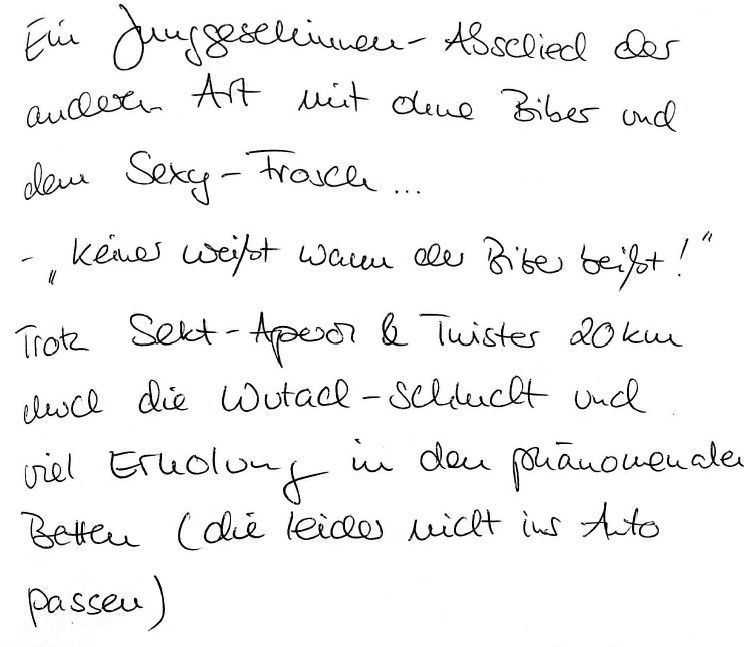 Ein Junggesellinnen-Abschied der
anderen Art mit dem Biber und
dem Sexy-Frosch...
- „Keiner weißt wann der Biber beißt!"
Trotz Sekt-Aperol & Twister 20km
durch die Wutach-Schlucht und
viel Erholung in den phänomenalen
Betten (die leider nicht ins Auto
passen)